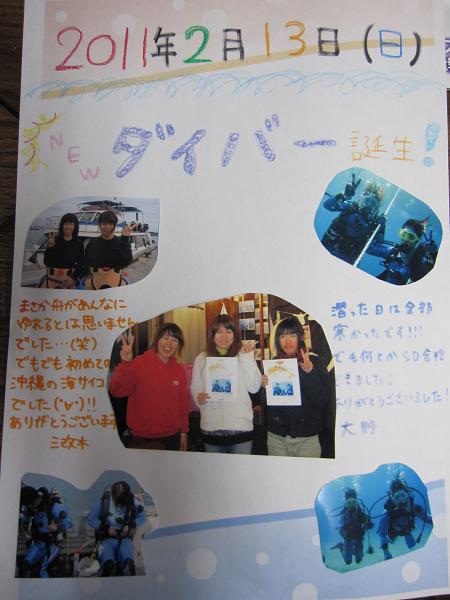 2011年2月13日(日)
NEW ダイバー誕生!
まさか舟があんなに
ゆれるとは思いません
でした…(笑)
でもでも初めての
沖縄の海サイコー
でした(°∀°)!!
ありがとうございます
三次木
潜った日は全部
寒かったです!!!
でも何とかSD合格
できました!
ありがとうございました!
大野